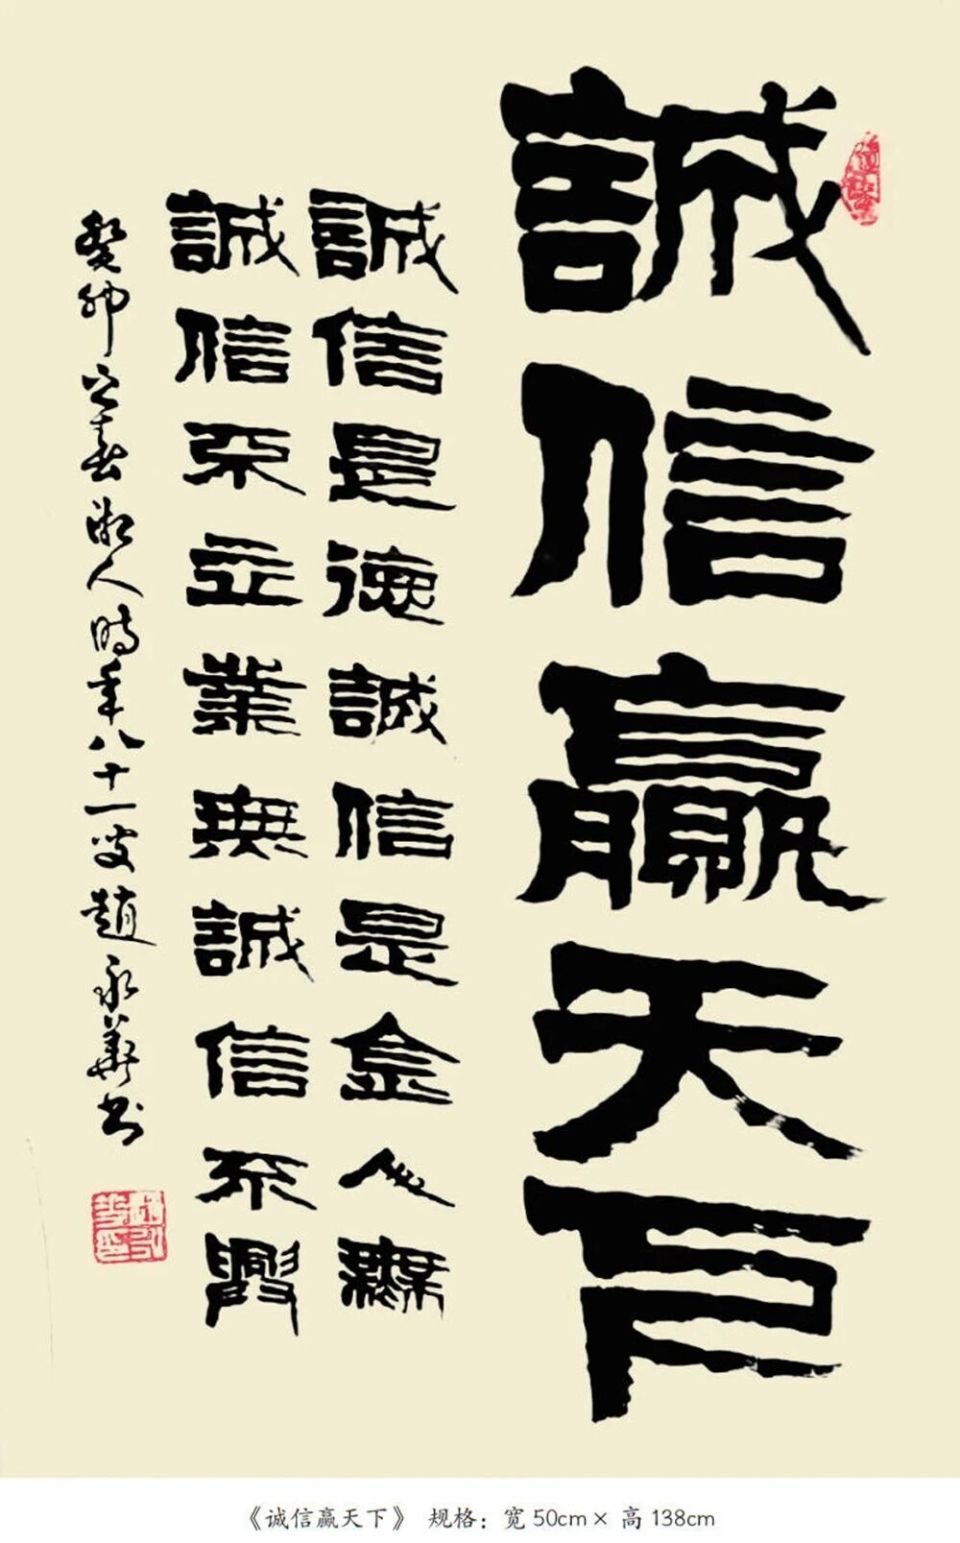 誠信贏天下
誠信是德誠信是金人無
誠信不立業無誠信不興
癸卯之春湘人時年八十一叟趙永華书
《诚信赢天下》 规格：宽50cm× 高138cm